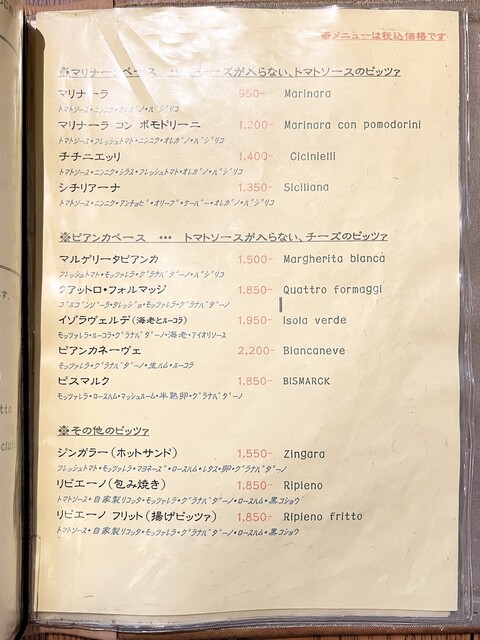 ※メニューは税込価格です
※マリナーラベース … チーズが入らない、トマトソースのピッツァ
マリナーラ 950- Marinara
トマトソース・ニンニク・オレガノ・バジリコ
マリナーラ コン ポモドリーニ 1,200- Marinara con pomodorini
トマトソース・フレッシュトマト・ニンニク・オレガノ・バジリコ
チチニエッリ 1,400- Cicinielli
トマトソース・ニンニク・シラス・フレッシュトマト・オレガノ・バジリコ
シチリアーナ 1,350- Siciliana
トマトソース・ニンニク・アンチョビ・オリーブ・ケーパー・オレガノ・バジリコ
※ビアンカベース … トマトソースが入らない、チーズのピッツァ
マルゲリータビアンカ 1,500- Margherita bianca
フレッシュトマト・モッツァレラ・グラナパダーノ・バジリコ
クアットロ・フォルマッジ 1,850- Quattro formaggi
ゴルゴンゾーラ・タレッジョ・モッツァレラ・グラナパダーノ
イゾラヴェルデ(海老とルーコラ) 1,950- Isola verde
モッツァレラ・ルーコラ・グラナパダーノ・海老・アイオリソース
ビアンカネーヴェ 2,200- Biancaneve
モッツァレラ・グラナパダーノ・生ハム・ルーコラ
ビスマルク 1,850- BISMARCK
モッツァレラ・ロースハム・マッシュルーム・半熟卵・グラナパダーノ
※その他のピッツァ
ジンガラー(ホットサンド) 1,550- Zingara
フレッシュトマト・モッツァレラ・マヨネーズ・ロースハム・レタス・卵・グラナパダーノ
リピエーノ(包み焼き) 1,850- Ripieno
トマトソース・自家製リコッタ・モッツァレラ・グラナパダーノ・ロースハム・黒コショウ
リピエーノ フリット(揚げピッツァ) 1,850- Ripieno fritto
トマトソース・自家製リコッタ・モッツァレラ・グラナパダーノ・ロースハム・黒コショウ